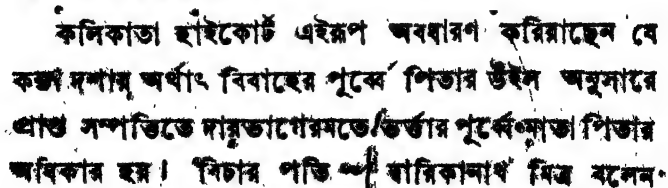 কলিকাতা হাইকোর্ট এইরূপ অবধারণ করিয়াছেন যে
কন্যা দশায় অর্থাৎ বিবাহের পূর্ব্বে পিতার উইল অনুসারে
প্রাপ্ত সম্পত্তিতে দায়ভাগেরমতে ভর্ত্তার পূর্ব্বে মাতা পিতার
অধিকার হয়। বিচার পতি দ্বারিকানাথ মিত্র বলেন